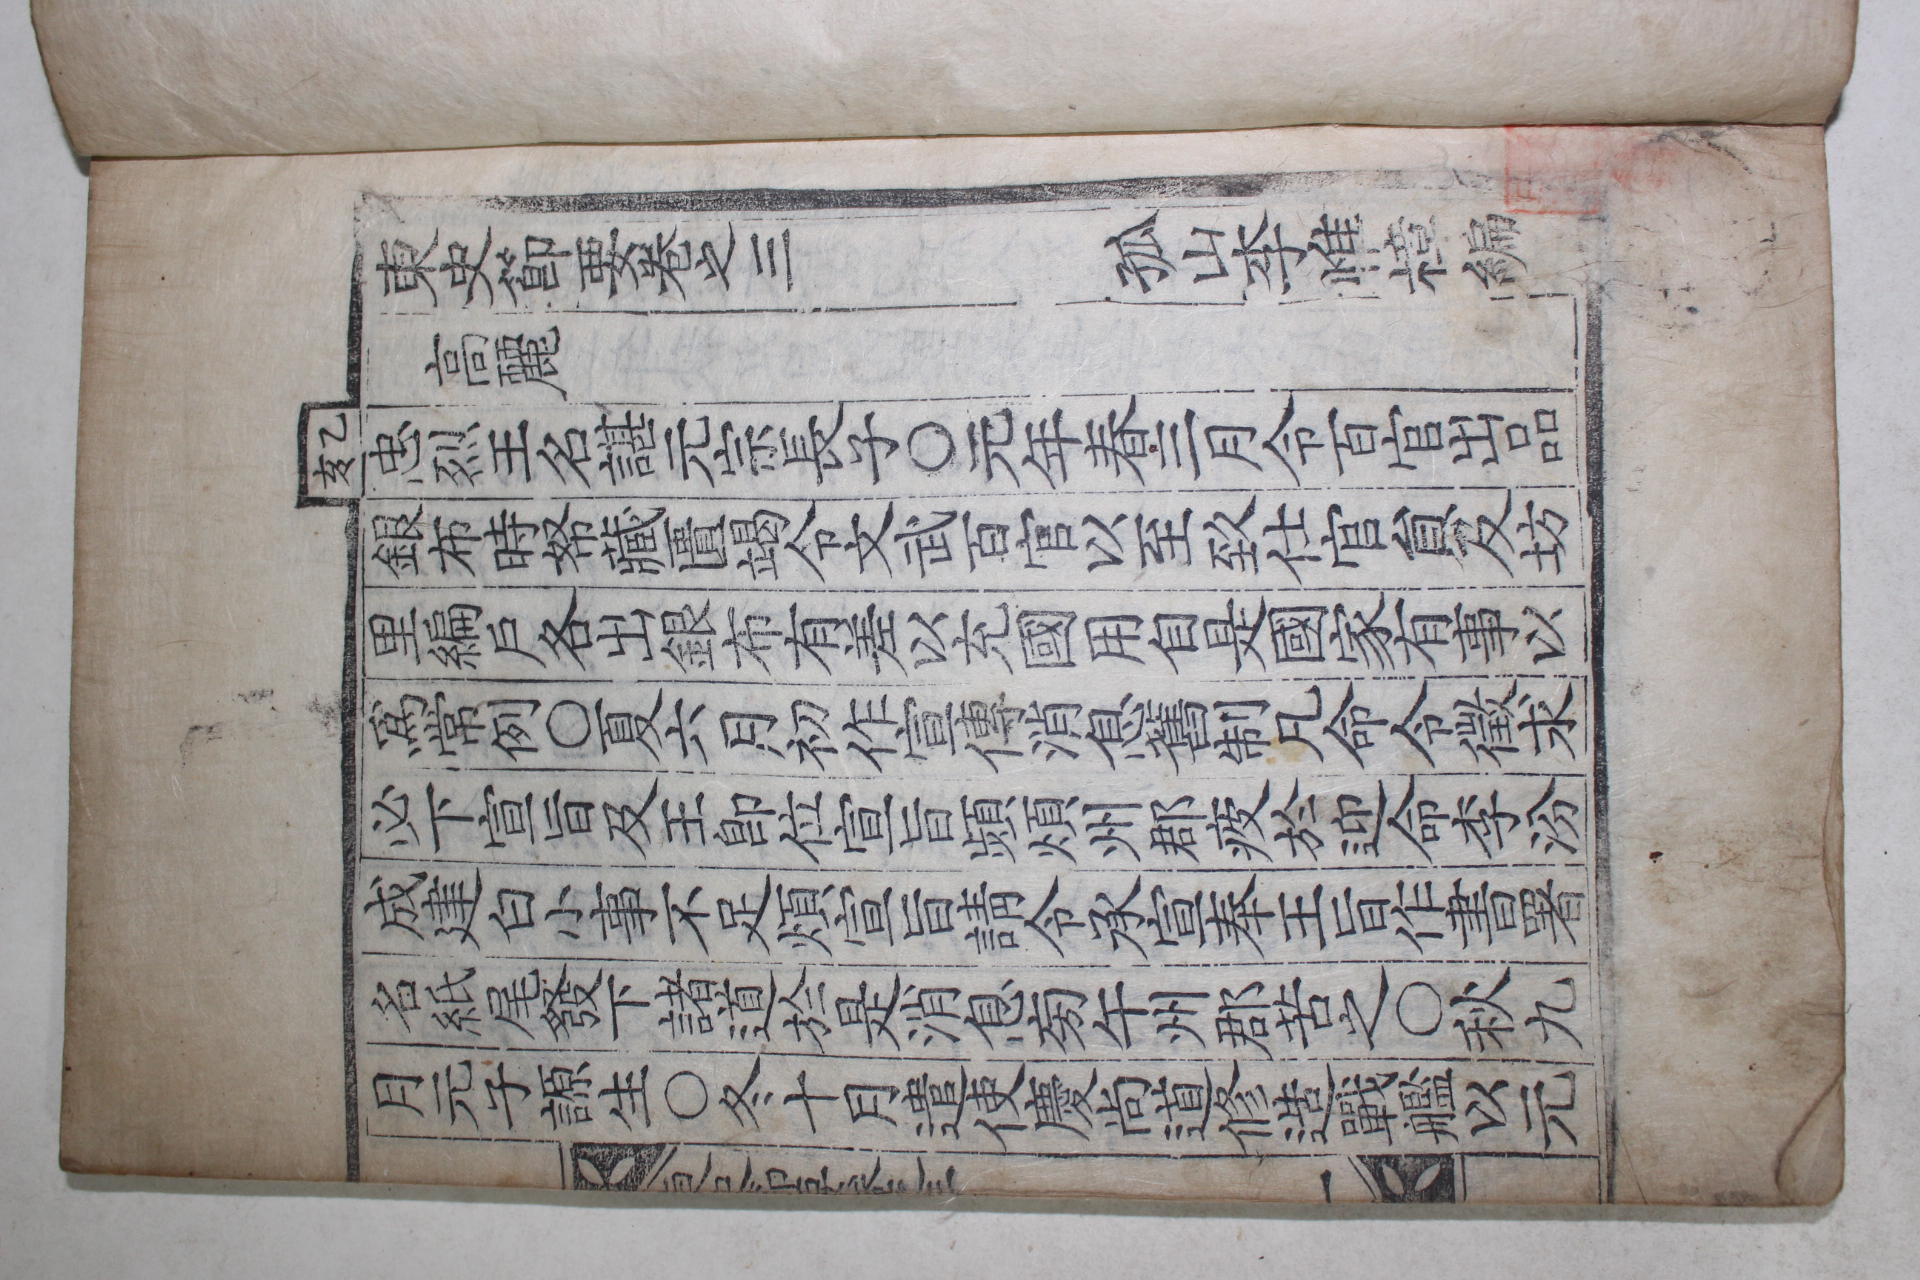 東史節要卷之三
孤山李惟樟編
高麗
乙亥
忠烈王名諶元宗長子○元年春三月令百官出品
銀布時帑藏匱竭令文武百官以至致仕官員及坊
里編戶各出銀布有差以充國用自是國家有事以
爲常例○夏六月初作宣傳消息舊制凡命令徵求
必下宣旨及王卽位宣旨頻煩州郡疲於迎命李汾
成建白小事不足煩宣旨請令承宣奉王旨作書署
名紙尾發下諸道於是消息旁午州郡苦之○秋九
月元子謜生○冬十月遣使慶尚道修造戰艦以元
東史節要卷之三
一